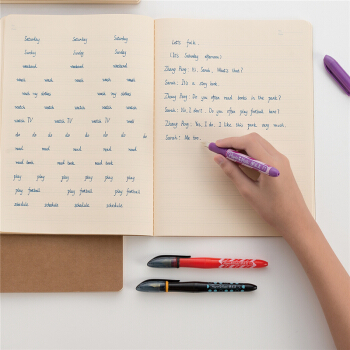 Saturday Saturday Saturday
Sunday Sunday Sunday
weekend weekend weekend
wash wash wash
wash my clothes wash my clothes
watch watch watch watch
watch TV watch TV watch
do do do do do do do do
read read read read
read book read book read book
play play play play play play
play football play football play football
schedule schedule schedule
Let's talk.
(It's Saturday afternoon.)
Zhang Peng: Hi, Sarah. What's that?
Sarah: It's a story book.
Zhang Peng: Do you often read books in the park?
Sarah: No, I don't. Do you often play football here?
Zhang Peng: Yes, I do. I like this park very much.
Sarah: Me too.